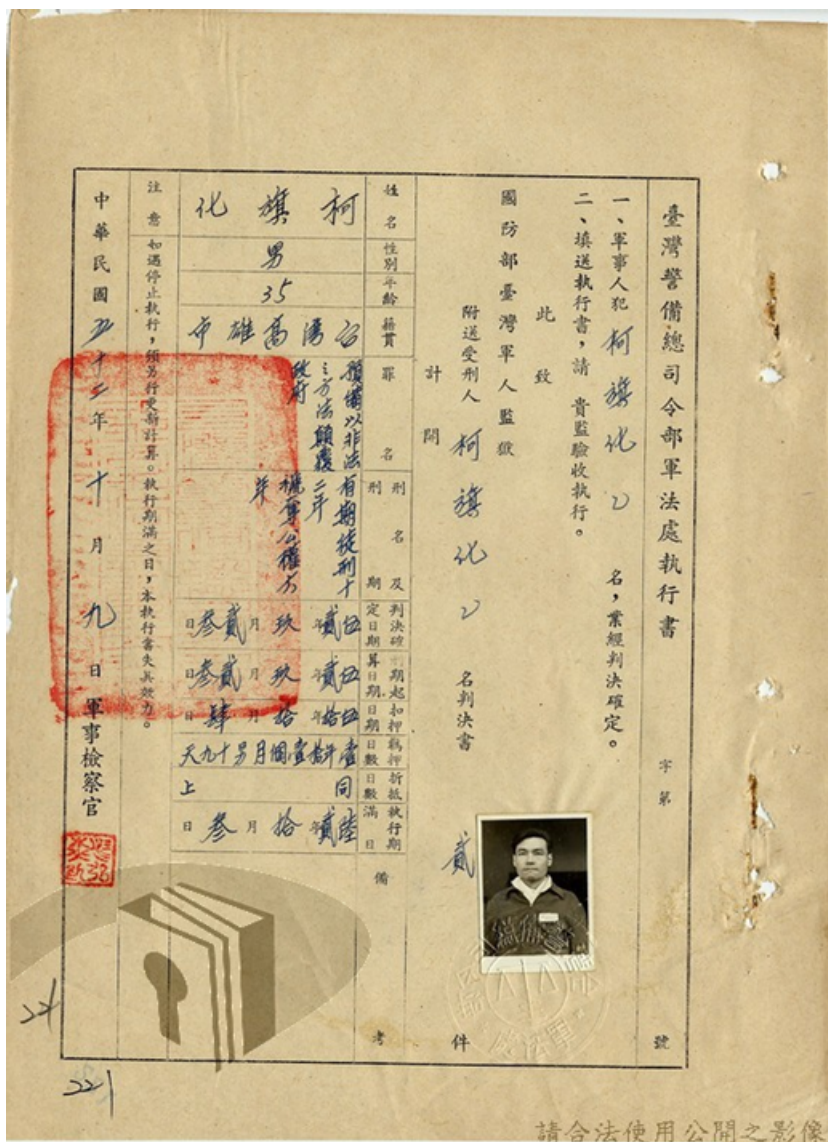 臺灣警備總司令部軍法處執行書 字第 號
一、軍事人犯柯旗化乙名,業經判決確定。
二、填送執行書,請 貴監驗收執行。
此致
國防部臺灣軍人監獄
附送受刑人柯旗化乙名判決書貳件
計開
姓名 柯旗化
性別 男
年齡 35
籍貫 台灣高雄市
罪名 預備以非法之方法顛覆政府
刑名及刑期 有期徒刑十二年 褫奪公權六年
判決確定日期 伍貳年玖月貳叁日
刑期起算日期 伍貳年玖月貳叁日
扣押日期 伍拾年拾月肆日
羈押日數 壹年拾壹個月另十九天
折抵日數 同上
執行期滿日 陸貳年拾月叁日
備考
注意 如遇停止執行,須另行更新計算。執行期滿之日,本執行書失其效力。
中華民國五十二年十月九日 軍事檢察官
221
221
請合法使用公開之影像